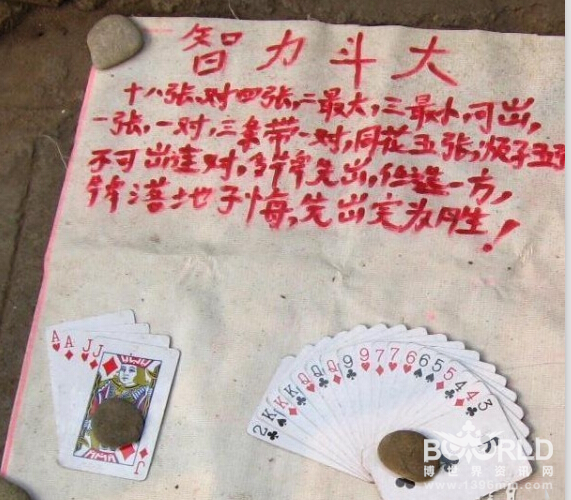 智力斗大
十八张,对四张,二最大,三最小,可出,
一张,一对,三条带一对,同花五张,顺子五
不可出连对,多牌先出,任选一方,
牌落地 悔,先出完为胜!
A A J J
J
2 K K K Q Q Q 9 9 7 7 6 6 5 5 4 4 3
博世界资讯网